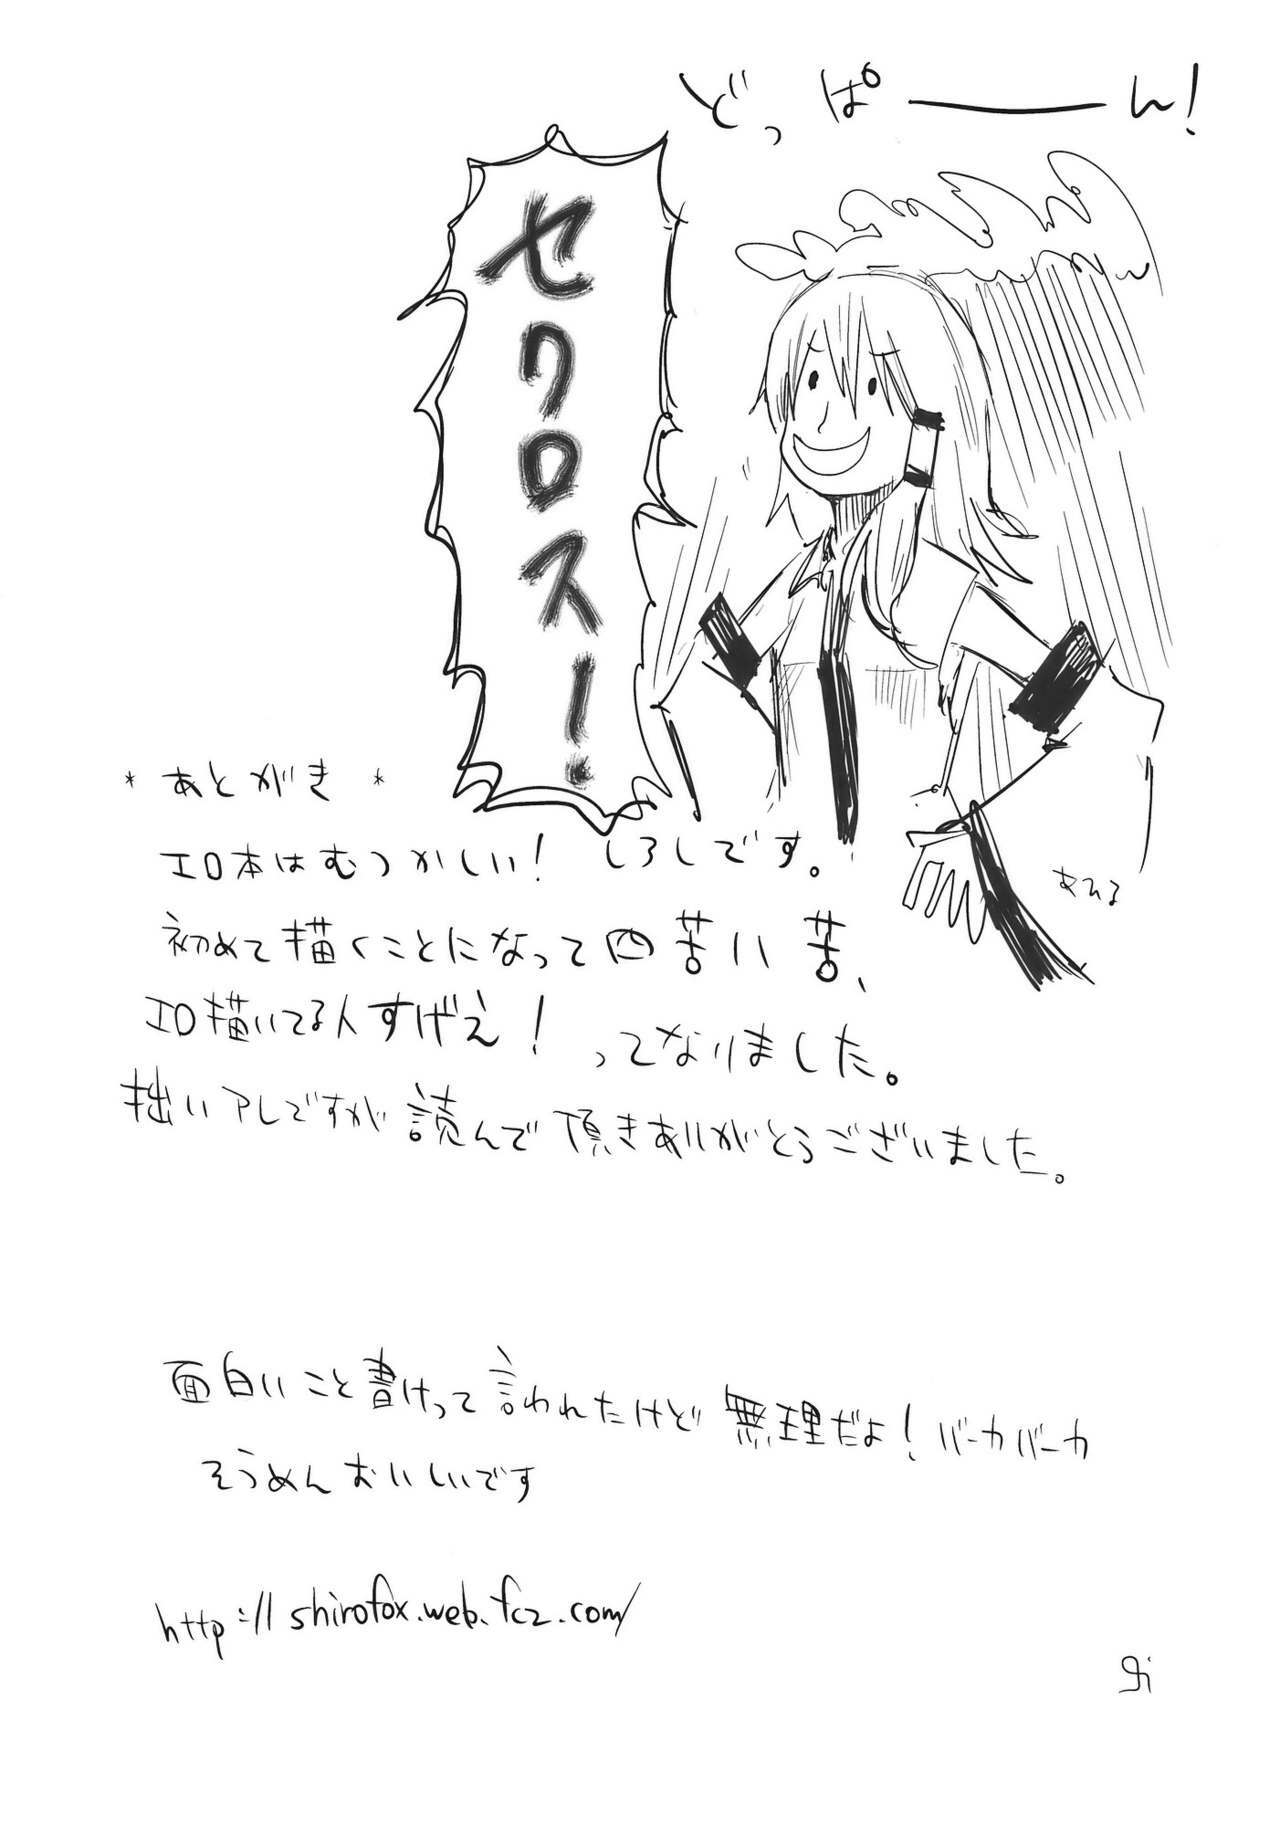 どっぱーーん!
セクロスー!
* あとがき *
エロ本はむつかしい! しろしです。
初めて描くことになって四苦八苦、
エロ描いてる人すげえ! ってなりました。
拙いアレですが読んで頂きありがとうございました。
面白いこと書けって言われたけど無理だよ! バーカバーカ
そうめんおいしいです
http://shirofox.web.fc2.com/